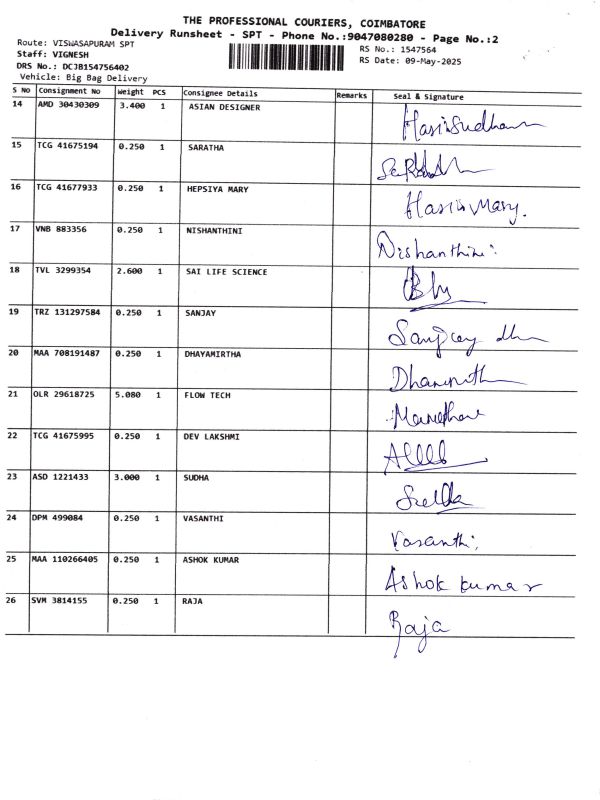 THE PROFESSIONAL COURIERS, COIMBATORE
Delivery Runsheet - SPT - Phone No.:9047080280 - Page No.:2
Route: VISWASAPURAM SPT
RS No.: 1547564
Staff: VIGNESH
RS Date: 09-May-2025
DRS No.: DCJB154756402
Vehicle: Big Bag Delivery
S No Consignment No Weight PCS Consignee Details Remarks Seal & Signature
14 AMD 30430309 3.400 1 ASIAN DESIGNER
15 TCG 41675194 0.250 1 SARATHA
16 TCG 41677933 0.250 1 HEPSIYA MARY Mary.
17 VNB 883356 0.250 1 NISHANTHINI Nishanthini
18 TVL 3299354 2.600 1 SAI LIFE SCIENCE
19 TRZ 131297584 0.250 1 SANJAY
20 MAA 708191487 0.250 1 DHAYAMIRTHA
21 OLR 29618725 5.080 1 FLOW TECH
22 TCG 41675995 0.250 1 DEV LAKSHMI
23 ASD 1221433 3.000 1 SUDHA
24 DPM 499084 0.250 1 VASANTHI Vasanthi
25 MAA 110266405 0.250 1 ASHOK KUMAR Ashok kumar
26 SVM 3814155 0.250 1 RAJA Raja